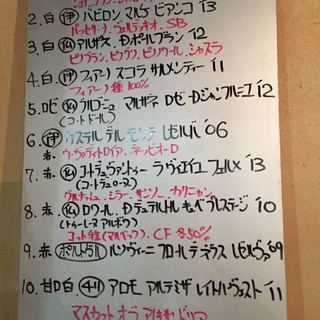 2. 白 伊 バビロン マルケ ビアンコ '13
パッセリーナ、ヴェルディッキオ、SB
3. 白 仏 アルザス ポール ブラン '12
ピノブラン、ピノグリ、ピノノワール、シャスラ
4. 白 伊 フィアーノ スコラ サルメンティー '11
フィアーノ種 100%
5. ロゼ 仏 ブルゴーニュ マルサネ ロゼ '12
(コート ドール)
6. 伊 カステル デル モンテ レゼルバ '06
赤 ウーヴァ ディ トロイア、ネッビオーロ
7. 赤 仏 コート デュ ヴァントゥー ラ ヴィエイユ フェルム '13
(コート デュ ローヌ)
グルナッシュ、シラー、サンソー、カリニャン
8. 赤 仏 ロワール キュベ プレステージ '10
(トゥーレーヌ アンボワーズ)
コット種(マルベック)、CF
9. 赤 ポルトガル レゼルヴァ
10. 甘口 白 チリ アロモ レイト ハーヴェスト '11
マスカット オブ アレキサンドリア